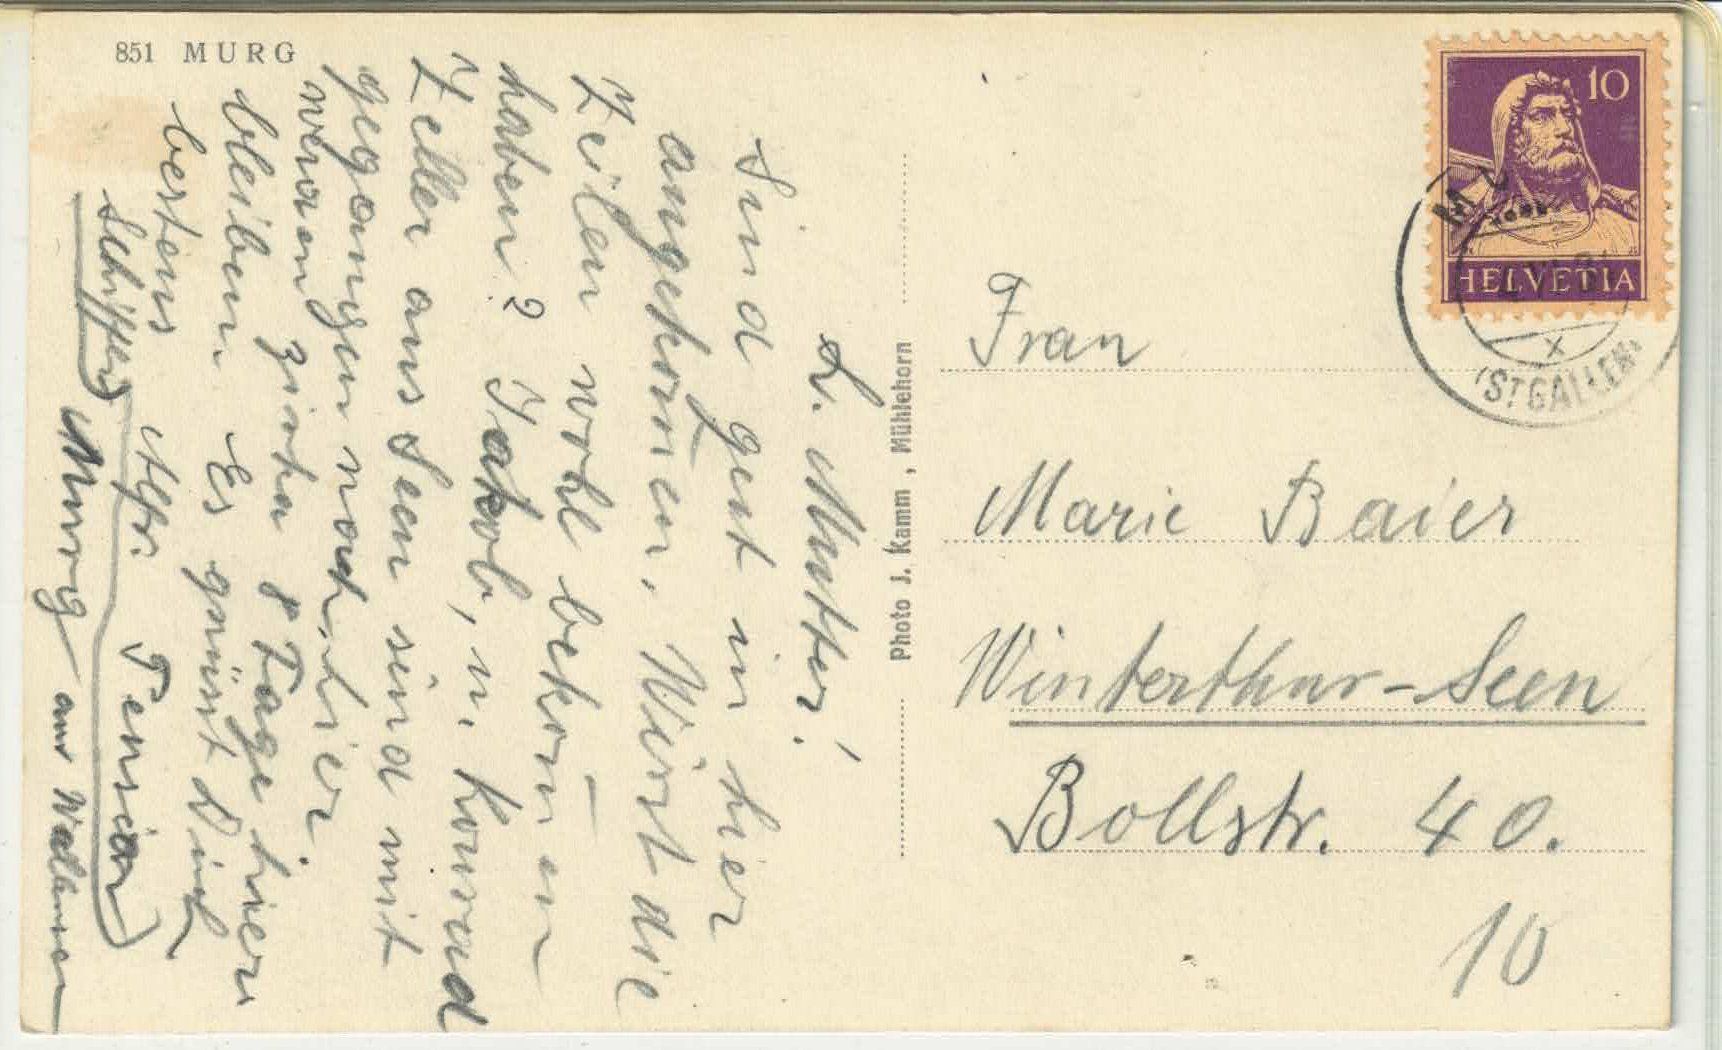 851 MURG
L. Mutter!
Sind gut in hier
angekomen, Wirst die
Zeilen wohl bekomen
haben? Jakob, u. Konrad
Zeller aus Seen sind mit
gegangen nach hier
werden zirka 8 Tage hier
bleiben. Es grüsst Dich
bestens Alfr.
Schiffli Pension
Murg am Wallensee
Photo J. Kamm, Mühlehorn
10
HELVETIA
(ST GALLEN)
Frau
Marie Baier
Winterthur-Seen
Bollstr. 40.
10